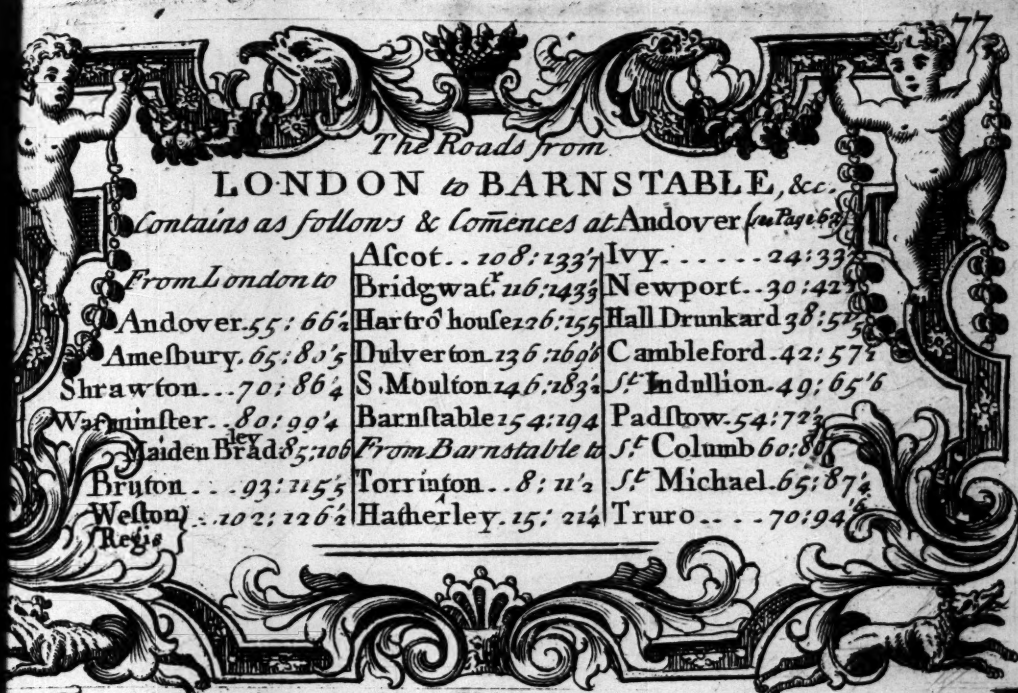 77
The Roads from
LONDON to BARNSTABLE, &c.
Contains as follows & Com̄ences at Andover (see Page 62)
From London to
Andover. 55: 66½
Ameſbury. 65: 80'5
Shrawton... 70: 86¼
Warminſter.. 80: 99'4
Maiden Bradley 85: 106
Bruton... 93: 115'5
Weſton Regis } .. 102: 126½
Aſcot.. 108: 133'7
Bridgwatr. 116: 143⅓
Hartrô houſe 126: 155
Dulverton. 136: 169'6
S. Moulton 146: 183½
Barnſtable 154: 194
From Barnstable to
Torrinton.. 8: 11½
Hatherley. 15: 21¼
Ivy...... 24: 33
Newport.. 30: 42
Hall Drunkard 38: 51
Cambleford. 42: 57½
St. Indullion. 49: 65'6
Padſtow. 54: 72
St. Columb 60:
St. Michael. 65: 87¼
Truro.... 70: 94'6